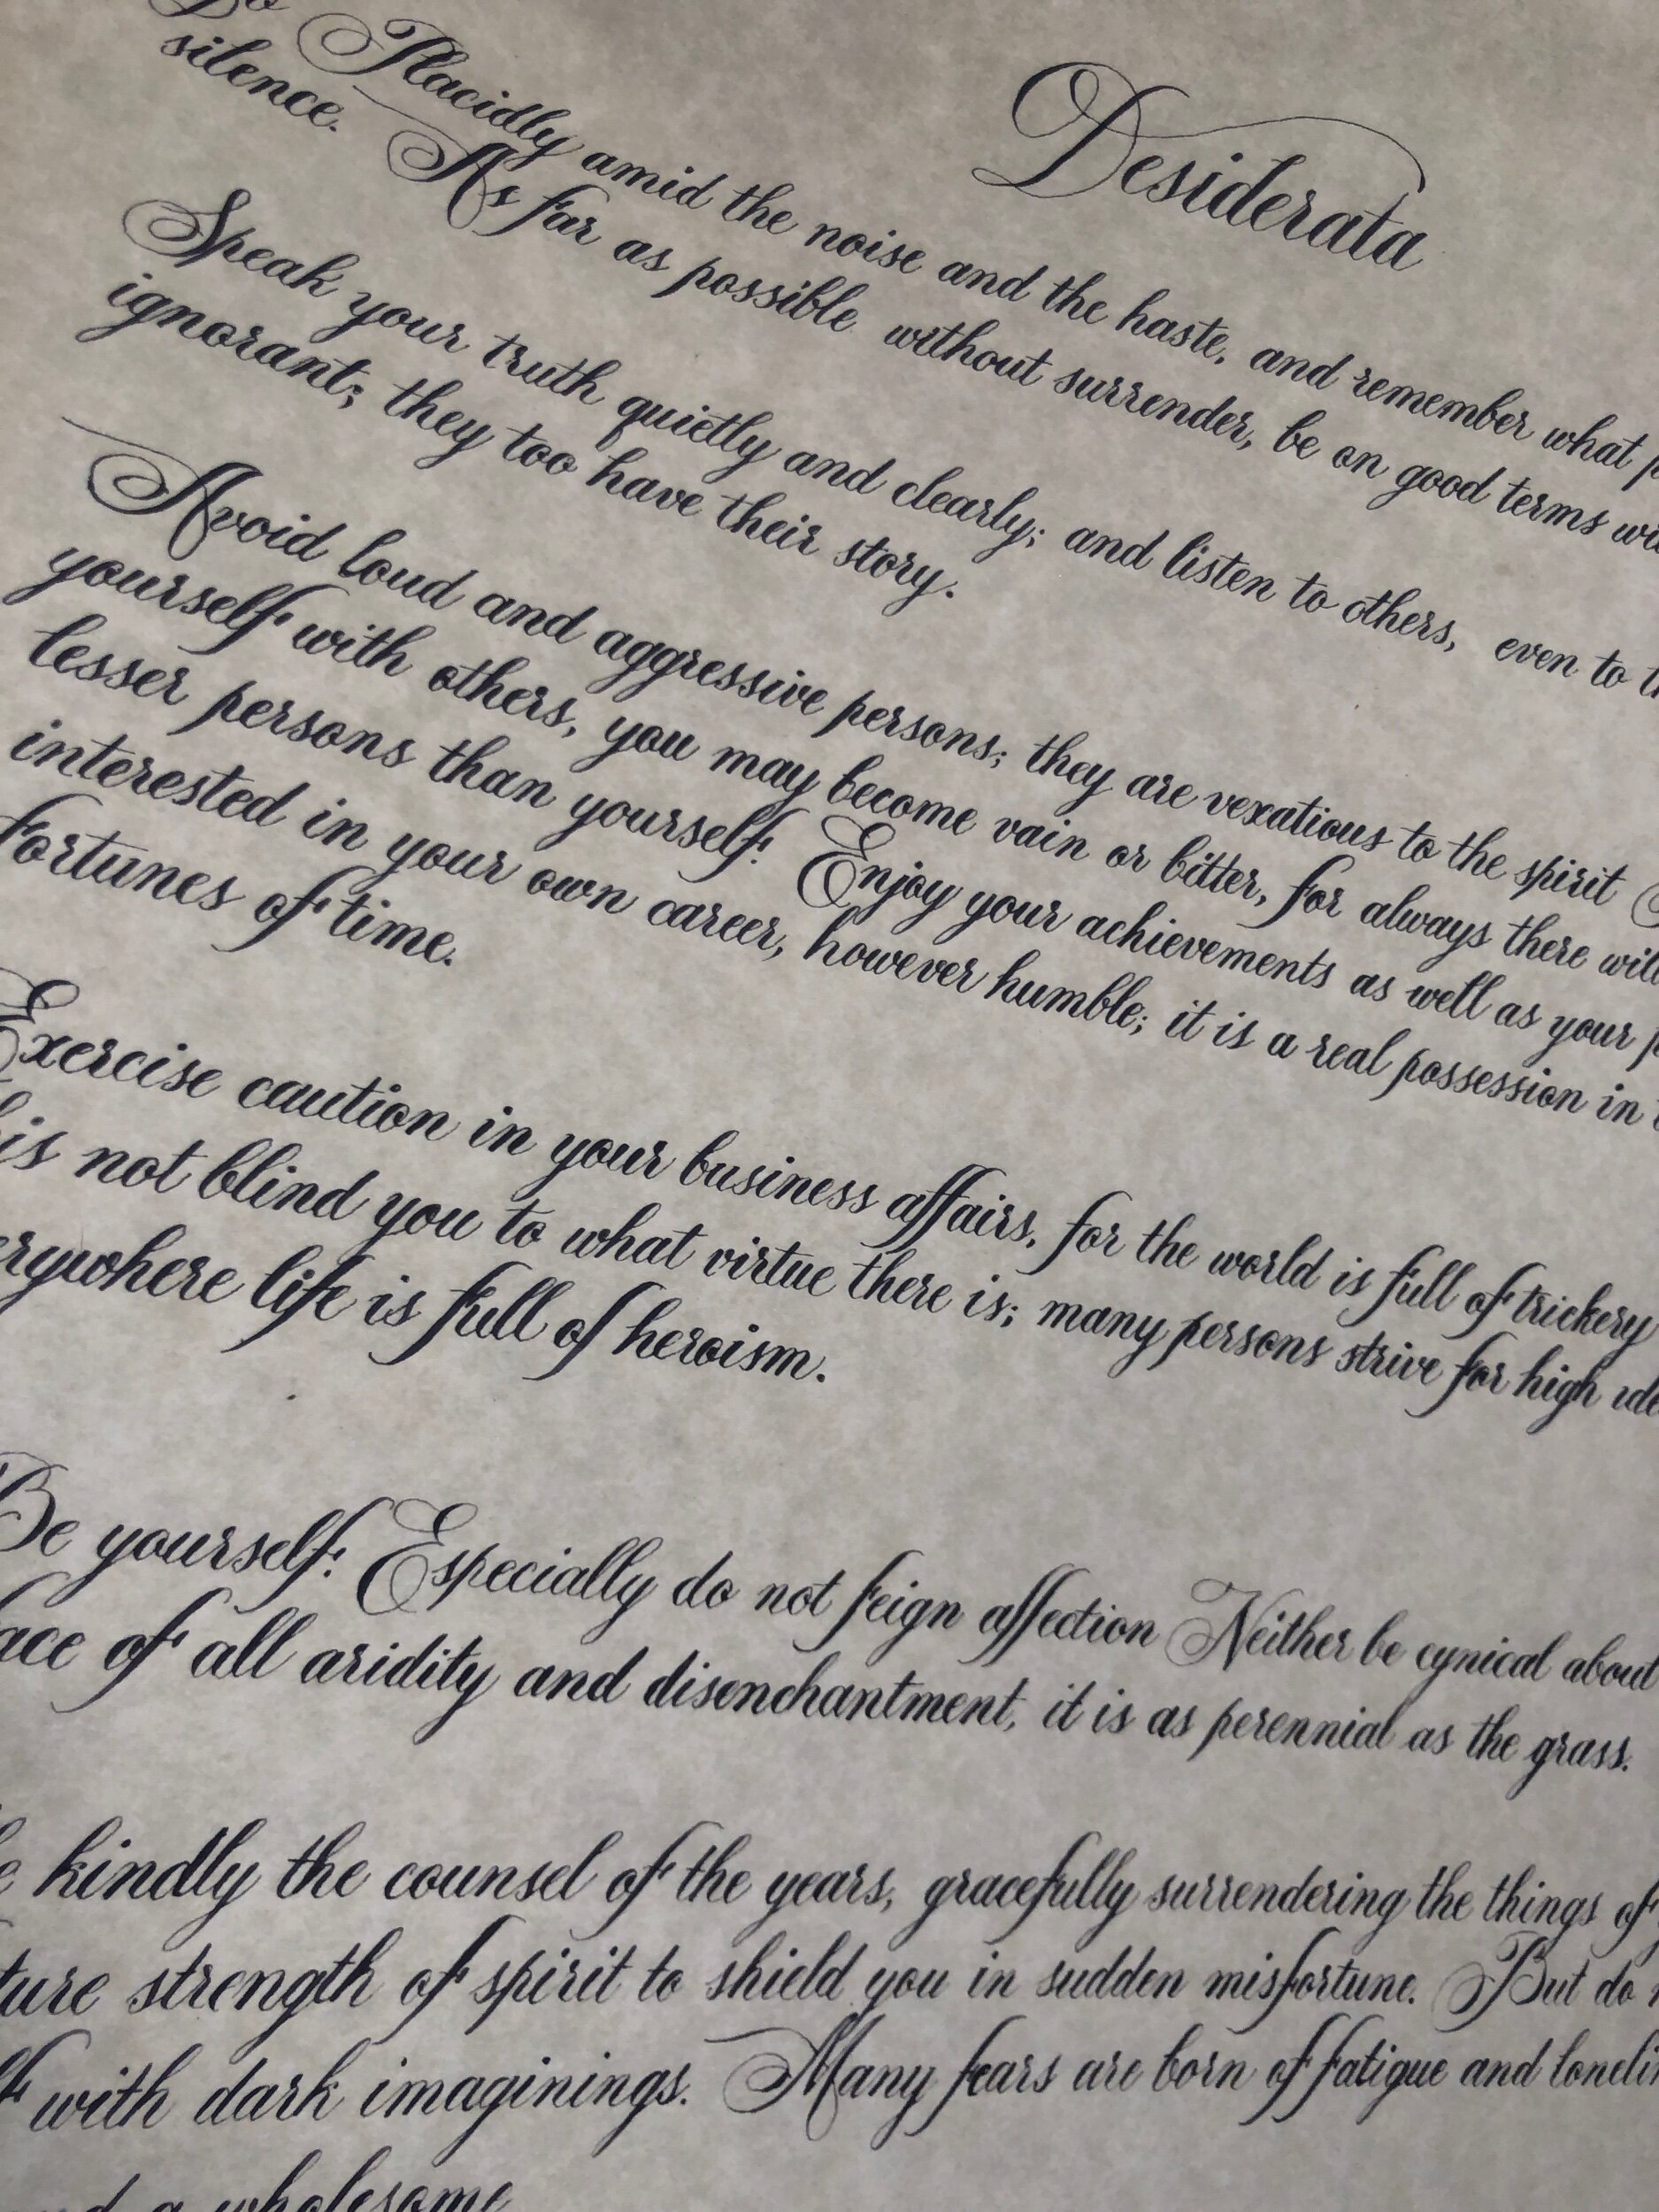 Desiderata
Go Placidly amid the noise and the haste, and remember what
silence. As far as possible without surrender, be on good terms
Speak your truth quietly and clearly; and listen to others, even to
ignorant; they too have their story.
Avoid loud and aggressive persons; they are vexatious to the spirit
yourself with others, you may become vain or bitter, for always there will
lesser persons than yourself. Enjoy your achievements as well as your
interested in your own career, however humble; it is a real possession in
fortunes of time.
Exercise caution in your business affairs, for the world is full of trickery
is not blind you to what virtue there is; many persons strive for high
rywhere life is full of heroism.
Be yourself. Especially do not feign affection Neither be cynical about
ace of all aridity and disenchantment, it is as perennial as the grass.
kindly the counsel of the years, gracefully surrendering the things of
ture strength of spirit to shield you in sudden misfortune. But do
with dark imaginings. Many fears are born of fatigue and
a wholesome